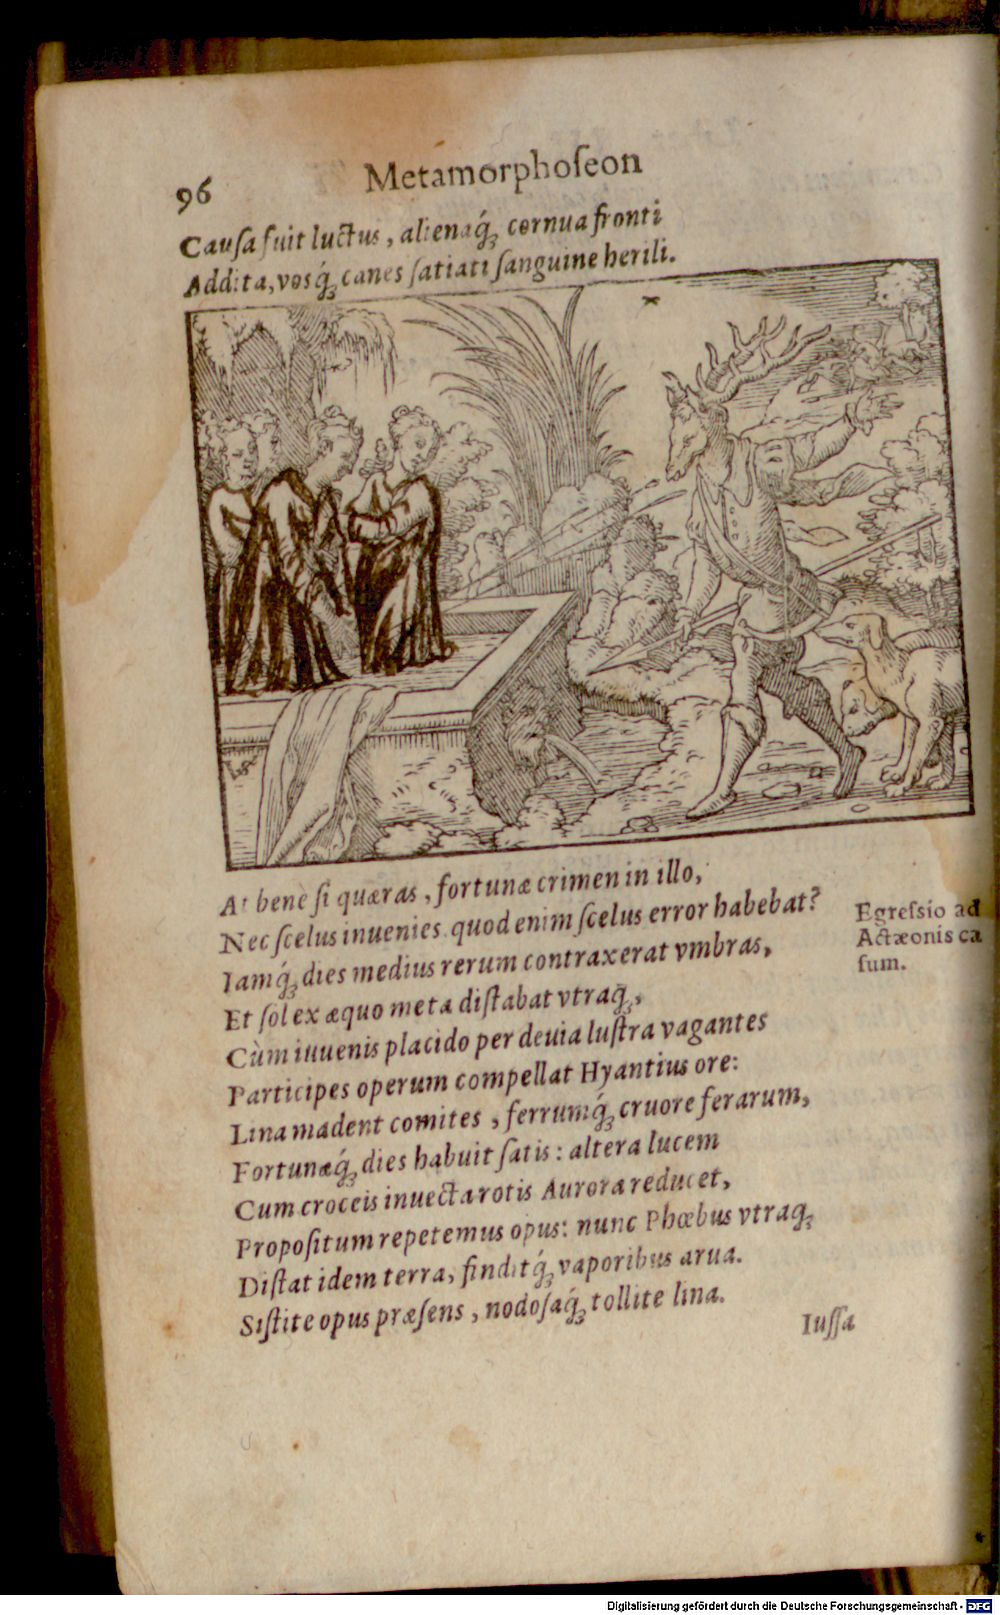 96 Metamorphoſeon
Cauſa fuit luctus, alienaq́; cornua fronti
Addita, vosq́; canes ſatiati ſanguine herili.
At bene ſi quæras, fortunæ crimen in illo,
Nec ſcelus inuenies. quod enim ſcelus error habebat?
Iamq́; dies medius rerum contraxerat vmbras,
Et ſol ex æquo meta diſtabat vtraq́;,
Cùm iuuenis placido per deuia luſtra vagantes
Participes operum compellat Hyantius ore:
Lina madent comites, ferrumq́; cruore ferarum,
Fortunæq́; dies habuit ſatis: altera lucem
Cum croceis inuecta rotis Aurora reducet,
Propoſitum repetemus opus: nunc Phœbus vtraq;
Diſtat idem terra, finditq́; vaporibus arua.
Siſtite opus præſens, nodoſaq́; tollite lina.
Egreſsio ad
Actæonis ca
ſum.
Iuſſa
Digitalisierung gefördert durch die Deutsche Forschungsgemeinschaft - DFG